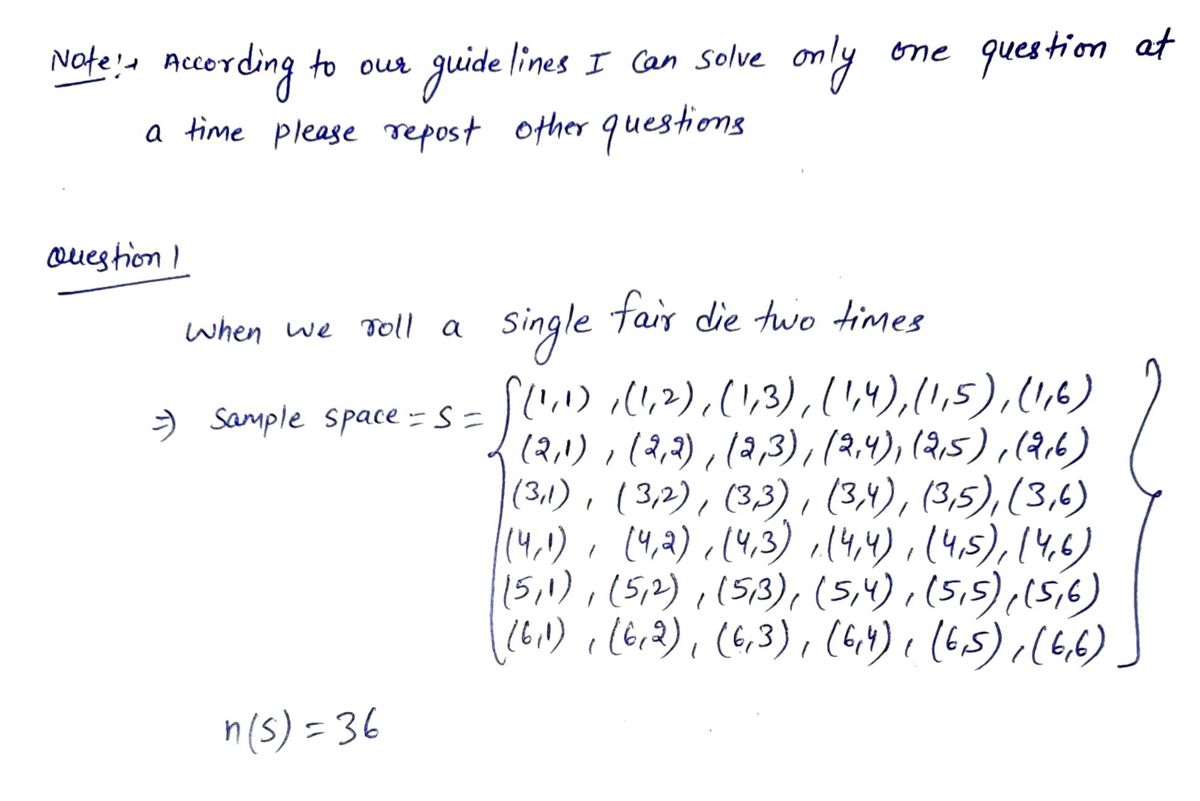 Note:→ According to our guidelines I can solve only one question at
a time please repost other questions
Question 1
when we roll a single fair die two times
⇒ Sample space = S = {(1,1), (1,2), (1,3), (1,4), (1,5), (1,6)
(2,1), (2,2), (2,3), (2,4), (2,5), (2,6)
(3,1), (3,2), (3,3), (3,4), (3,5), (3,6)
(4,1), (4,2), (4,3), (4,4), (4,5), (4,6)
(5,1), (5,2), (5,3), (5,4), (5,5), (5,6)
(6,1), (6,2), (6,3), (6,4), (6,5), (6,6)}
n(S) = 36